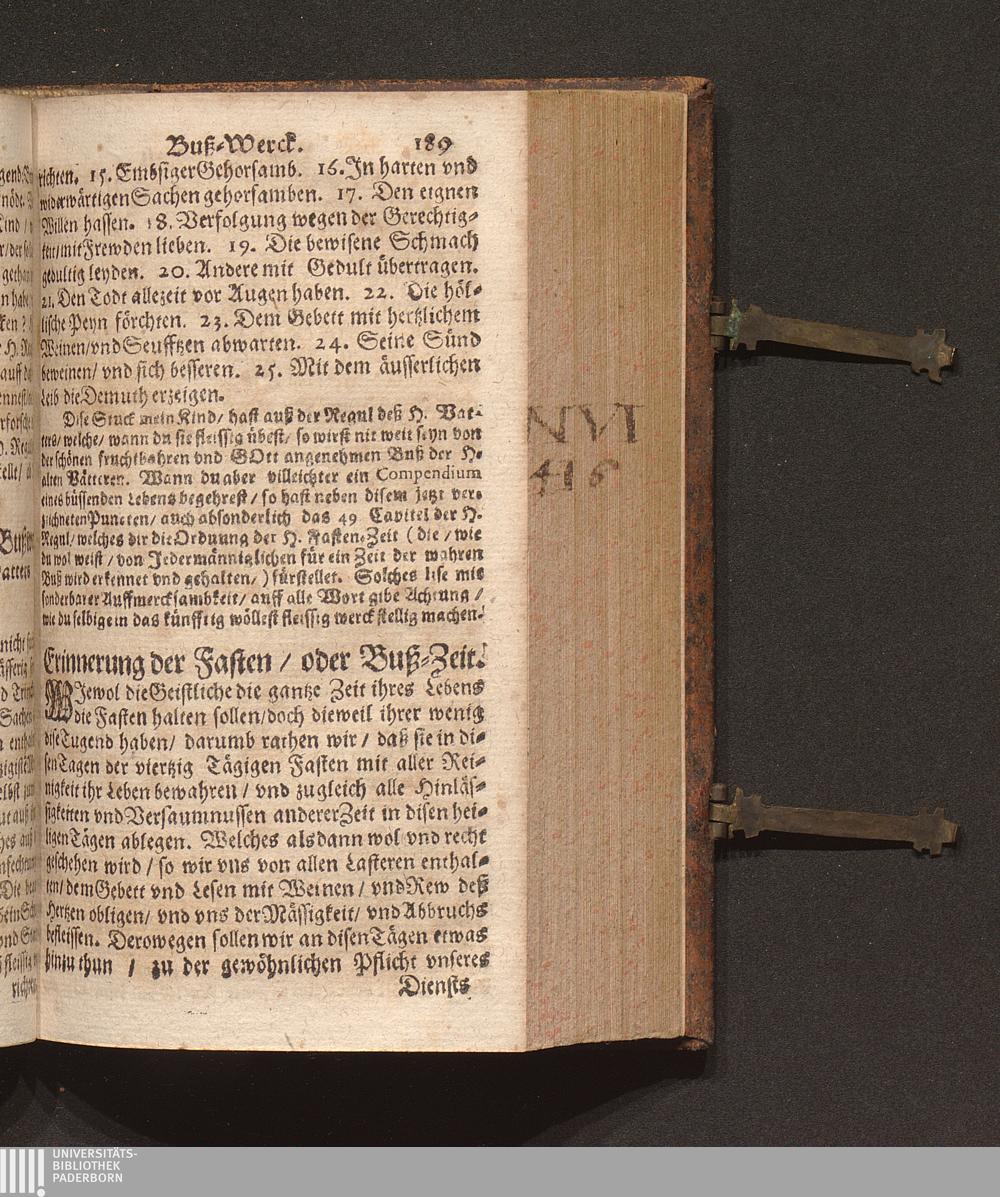 Buß-Werck. 189
richten. 15. Embsiger Gehorsamb. 16. In harten vnd
widerwärtigen Sachen gehorsamben. 17. Den eignen
Willen hassen. 18. Verfolgung wegen der Gerechtig-
keit/ mit Frewden lieben. 19. Die bewisene Schmach
gedultig leyden. 20. Andere mit Gedult übertragen.
21. Den Todt allezeit vor Augen haben. 22. Die höl-
lische Peyn förchten. 23. Dem Gebett mit hertzlichem
Weinen/ vnd Seufftzen abwarten. 24. Seine Sünd
beweinen/ vnd sich besseren. 25. Mit dem äusserlichen
Leib die Demuth erzeigen.
Dise Stuck mein Kind/ hast auß der Regul deß H. Vat-
ters/ welche/ wann du sie fleissig übest/ so wirst nit weit seyn von
der schönen fruchtbahren vnd GOtt angenehmen Buß der H.
alten Vätteren. Wann du aber villeichter ein Compendium
eines büssenden Lebens begehrest/ so hast neben disem jetzt ver-
zeichneten Puncten/ auch absonderlich das 49 Capitel der H.
Regul/ welches dir die Ordnung der H. Fasten-Zeit ( die / wie
du wol weist / von Jedermänniglichen für ein Zeit der wahren
Buß wird erkennet vnd gehalten/ ) fürstellet. Solches lise mit
sonderbarer Auffmercksambkeit/ auff alle Wort gibe Achtung /
wie du selbige in das künfftig wöllest fleissig werckstellig machen.
Erinnerung der Fasten / oder Buß-Zeit.
WJewol die Geistliche die gantze Zeit ihres Lebens
die Fasten halten sollen/ doch dieweil ihrer wenig
dise Tugend haben/ darumb rathen wir / daß sie in di-
sen Tagen der viertzig Tägigen Fasten mit aller Rei-
nigkeit ihr Leben bewahren / vnd zugleich alle Hinläs-
sigkeiten vnd Versaumnussen anderer Zeit in disen hei-
ligen Tägen ablegen. Welches alsdann wol vnd recht
geschehen wird / so wir vns von allen Lasteren enthal-
ten/ dem Gebett vnd Lesen mit Weinen / vnd Rew deß
Hertzen obligen/ vnd vns der Mässigkeit/ vnd Abbruchs
befleissen. Derowegen sollen wir an disen Tägen etwas
hinzu thun / zu der gewöhnlichen Pflicht vnseres
Diensts
NVI
416
UNIVERSITÄTS-
BIBLIOTHEK
PADERBORN